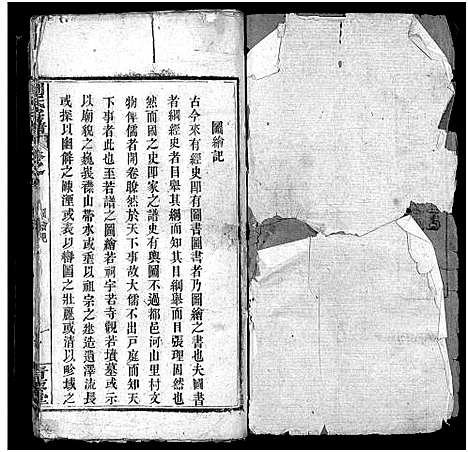 圖繪記
古今來有經史即有圖書圖書者乃圖繪之書也夫圖書
者綱經史者目舉其綱而知其目綱舉而目張理固然也
然而國之史即家之譜史有輿圖不過都邑河山里村文
物俾儒者開卷瞭然於天下事故大儒不出戶庭而知天
下事者此也至若譜之圖繪若祠宇若寺觀若墳墓或示
以廟貌之巍峩襟山帶水或垂以祖宗之建造遺澤流長
或採以幽僻之陳湮或表以壽圖之壯麗或清以畛域之
圖繪記